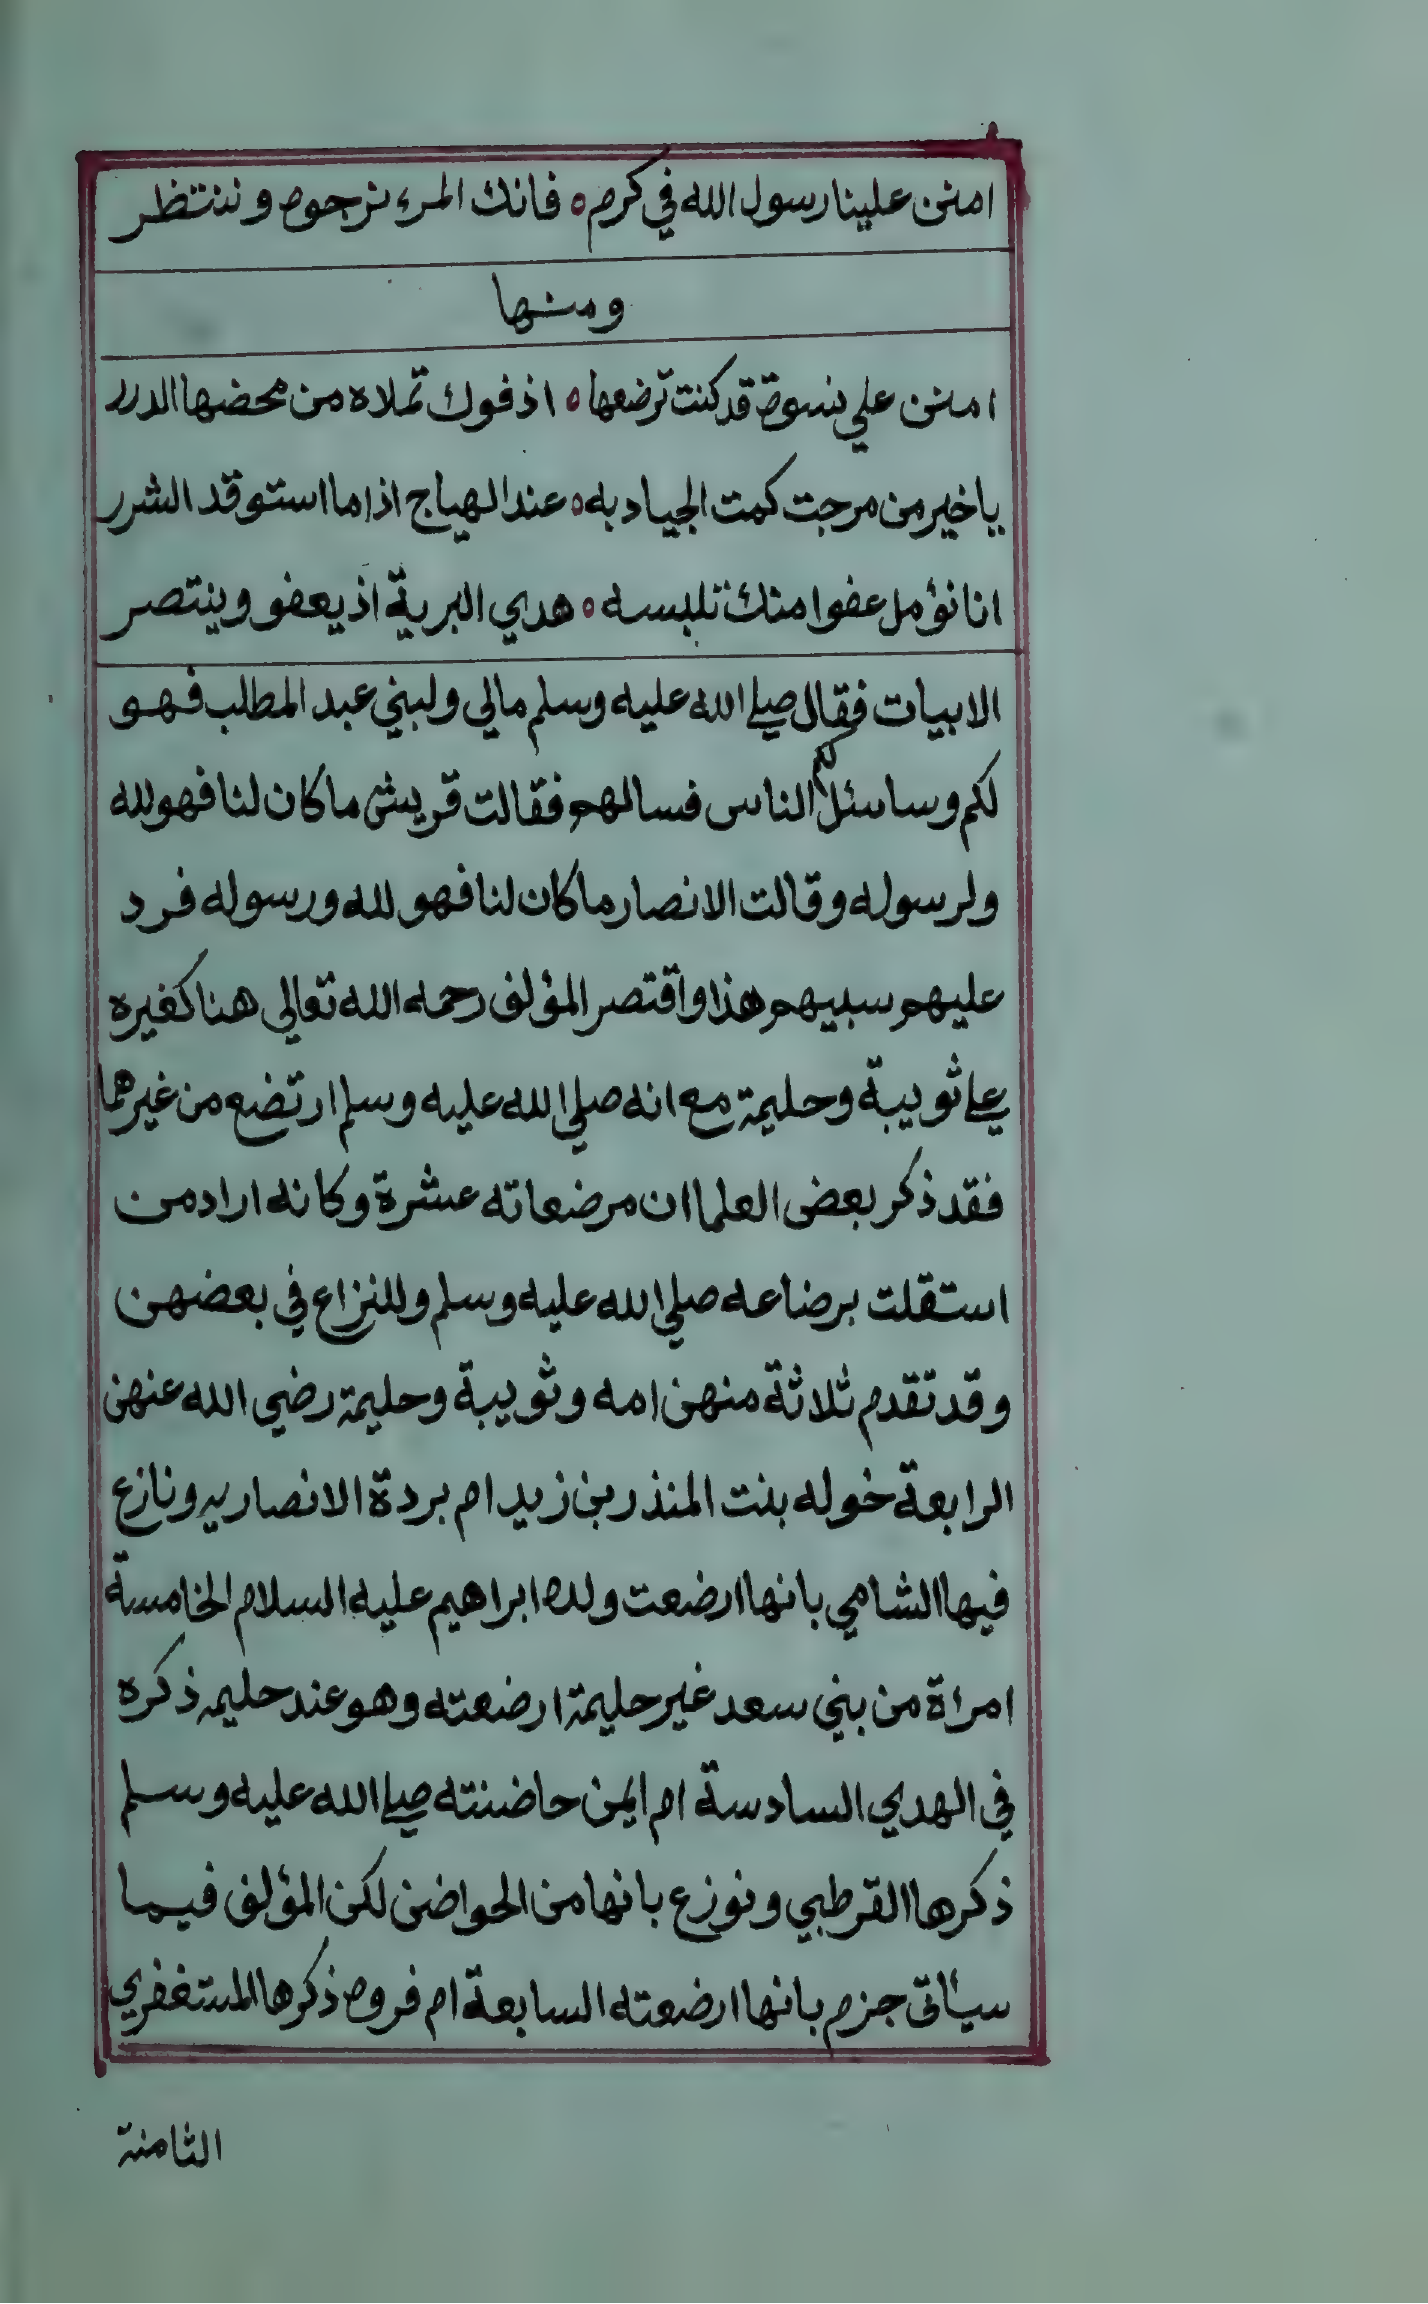 امنن علينا رسول الله في كرم ٥ فانك المرء نرجوه وننتظر
ومنها
امنن علي نسوة قد كنت ترضعها ٥ اذ فوك تملاه من محضها الدرر
يا خير من مرجت كمت الجياد به ٥ عند الهياج اذا ما استوقد الشرر
انا نؤمل عفوا منك تلبسه ٥ هدي البرية اذ يعفو وينتصر
الابيات فقال صلي الله عليه وسلم مالي ولبني عبد المطلب فهو
لكم وساسئل لكم الناس فسالهم فقالت قريش ما كان لنا فهو لله
ولرسوله وقالت الانصار ما كان لنا فهو لله ورسوله فرد
عليهم سبيهم هذا واقتصر المؤلف رحمه الله تعالي هنا كغيره
علي ثويبة وحليمة مع انه صلي الله عليه وسلم ارتضع من غيرهما
فقد ذكر بعض العلما ان مرضعاته عشرة وكانه اراد من
استقلت برضاعه صلي الله عليه وسلم وللنزاع في بعضهن
وقد تقدم ثلاثة منهن امه وثويبة وحليمة رضي الله عنهن
الرابعة خوله بنت المنذر بن زيد ام بردة الانصاريه ونازع
فيها الشامي بانها ارضعت ولده ابراهيم عليه السلام الخامسة
امراة من بني سعد غير حليمة ارضعته وهو عند حليمه ذكره
في الهدي السادسة ام ايمن حاضنته صلي الله عليه وسلم
ذكرها القرطبي ونوزع بانها من الحواضن لكن المؤلف فيما
سيأتي جزم بانها ارضعته السابعة ام فروه ذكرها المستغفري
الثامنة